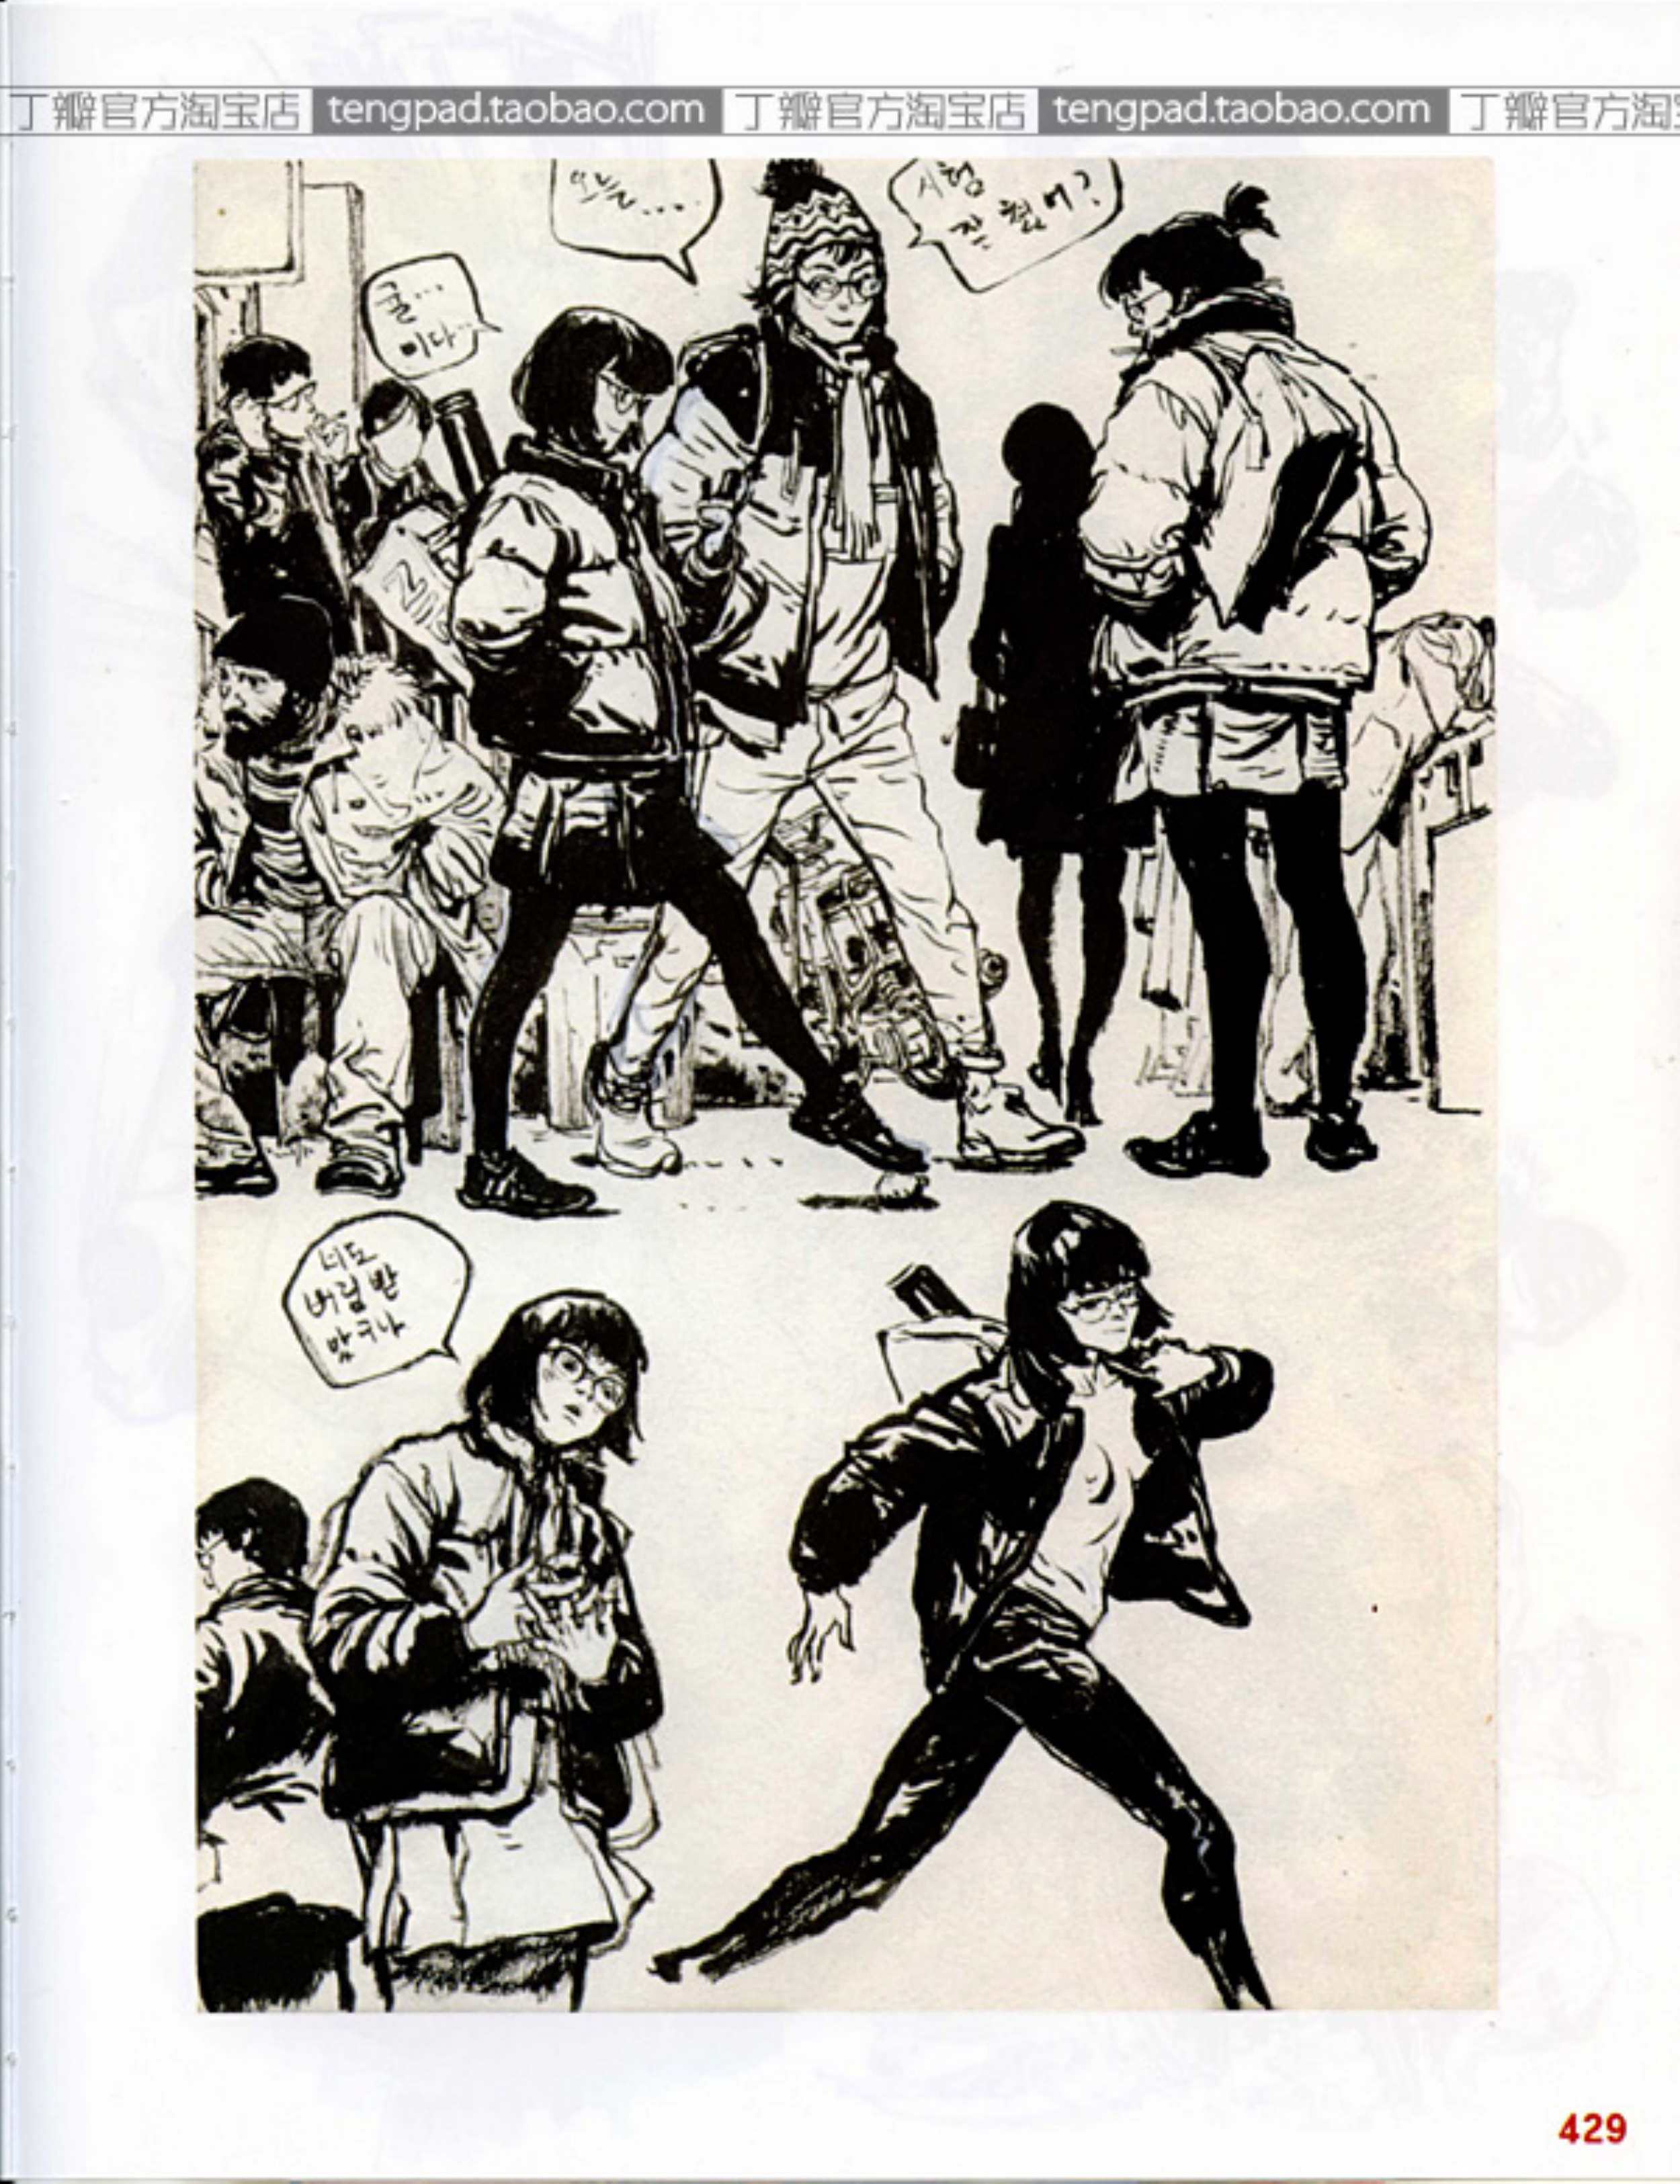 丁瓣官方淘宝店 tengpad.taobao.com 丁瓣官方淘宝店 tengpad.taobao.com 丁瓣官方淘
시험
잘 봤어?
귤...
이다...
너도
버림받
았구나
429